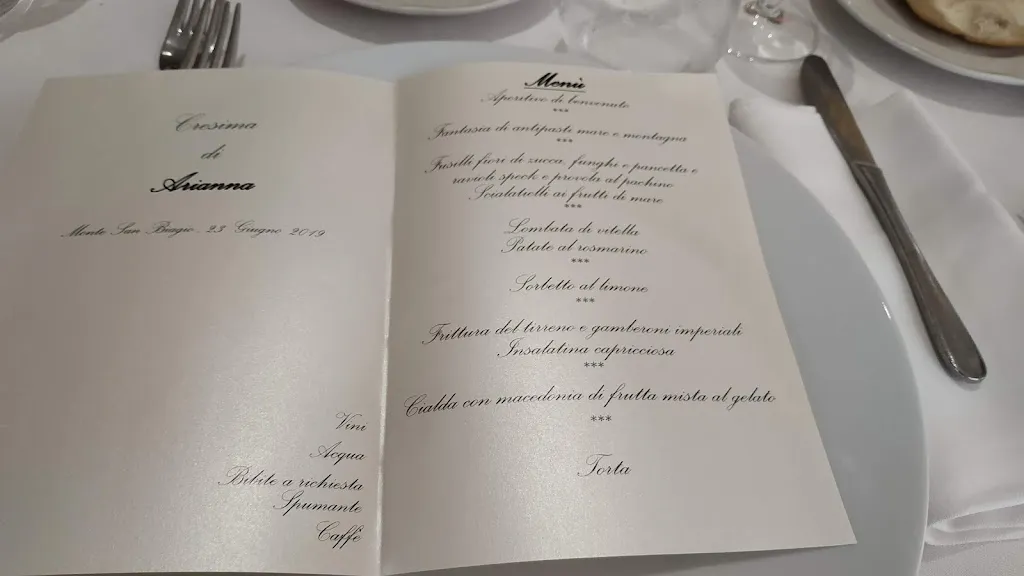 Cresima
di
Arianna
Monte San Biagio, 23 Giugno 2019
Vini
Acqua
Bibite a richiesta
Spumante
Caffè
Menù
Aperitivo di benvenuto
***
Fantasia di antipasti mare e montagna
***
Fusilli fiori di zucca, funghi e pancetta e
ravioli speck e provola al pachino
Scialatielli ai frutti di mare
***
Lombata di vitella
Patate al rosmarino
***
Sorbetto al limone
***
Frittura del tirreno e gamberoni imperiali
Insalatina capricciosa
***
Cialda con macedonia di frutta mista al gelato
***
Torta